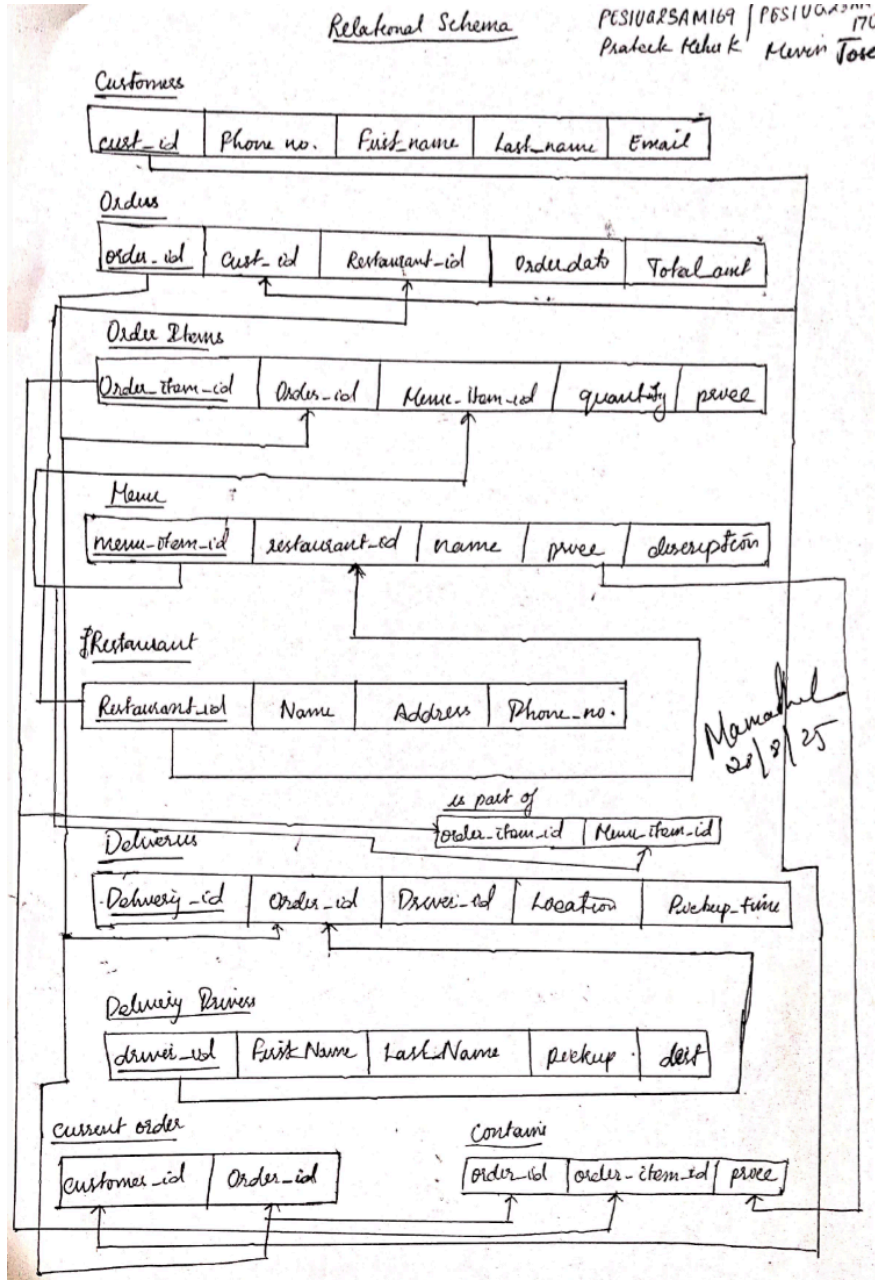 Relational Schema
PES1UG2SAM169 | PES1UG2SAM
170
Prateek Mehu K | Mevin Jose
Customers
cust_id | Phone no. | First_name | Last_name | Email
Orders
order_id | Cust_id | Restaurant_id | Order_date | Total_amt
Order Items
Order_item_id | Order_id | Menu_item_id | quantity | price
Menu
menu_item_id | restaurant_id | name | price | description
Restaurant
Restaurant_id | Name | Address | Phone_no.
28/8/25
is part of
order_item_id | Menu_item_id
Deliveries
Delivery_id | Order_id | Driver_id | Location | Pickup_time
Delivery Drivers
driver_id | First Name | Last_Name | pickup | dest
current order
customer_id | Order_id
Contains
order_id | order_item_id | price